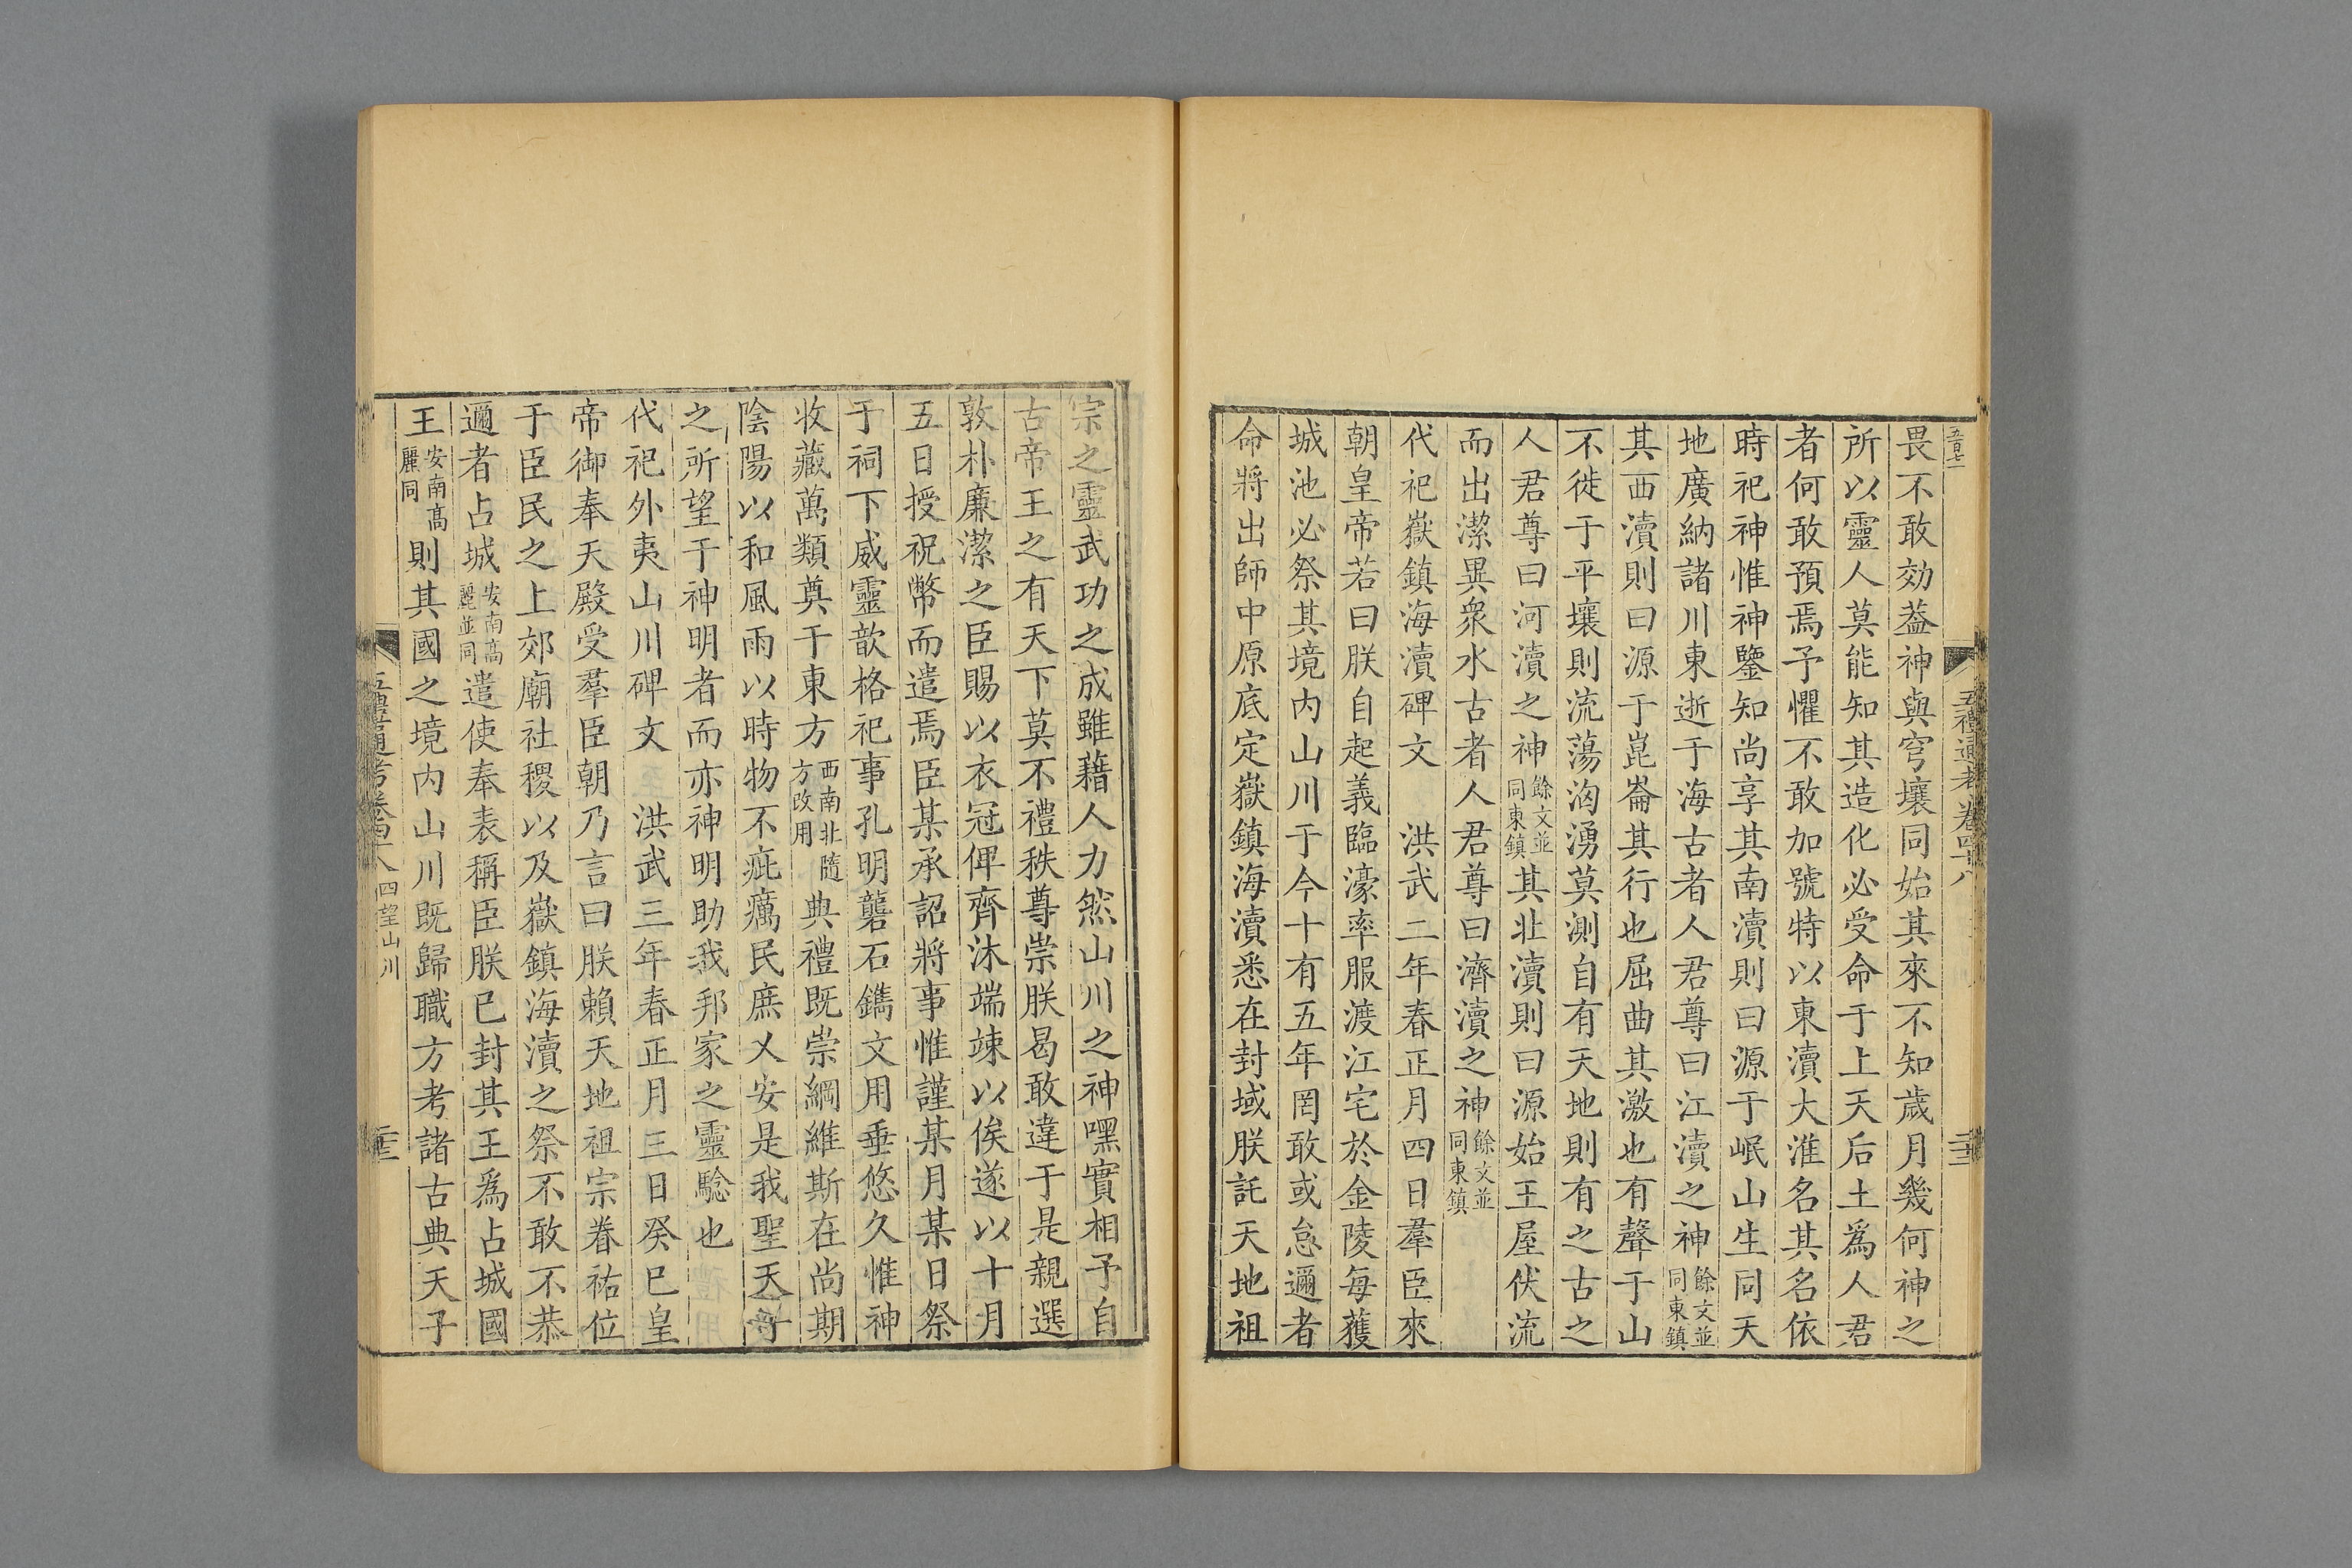 五百七一
五禮通考卷四十八
畏不敢効葢神與穹壤同始其來不知歲月幾何神之
所以靈人莫能知其造化必受命于上天后土爲人君
者何敢預焉予懼不敢加號特以東瀆大淮名其名依
時祀神惟神鑒知尚享其南瀆則曰源于岷山生同天
地廣納諸川東逝于海古者人君尊曰江瀆之神餘文並同東鎮
其西瀆則曰源于崑崙其行也屈曲其激也有聲于山
不徙于平壤則流蕩洶湧莫測自有天地則有之古之
人君尊曰河瀆之神餘文並同東鎮其北瀆則曰源始王屋伏流
而出潔異衆水古者人君尊曰濟瀆之神餘文並同東鎮
代祀嶽鎮海瀆碑文　洪武二年春正月四日羣臣來
朝皇帝若曰朕自起義臨濠率服渡江宅於金陵每獲
城池必祭其境内山川于今十有五年罔敢或怠邇者
命將出師中原底定嶽鎮海瀆悉在封域朕託天地祖
宗之靈武功之成雖藉人力然山川之神嘿實相予自
古帝王之有天下莫不禮秩尊崇朕曷敢違于是親選
敦朴廉潔之臣賜以衣冠俾齊沐端竦以俟遂以十月
五日授祝幣而遣焉臣某承詔將事惟謹某月某日祭
于祠下威靈歆格祀事孔明礱石鐫文用垂悠久惟神
收藏萬類奠于東方西南北隨方改用典禮既崇綱維斯在尚期
陰陽以和風雨以時物不疵癘民庶乂安是我聖天子
之所望于神明者而亦神明助我邦家之靈驗也
代祀外夷山川碑文　洪武三年春正月三日癸巳皇
帝御奉天殿受羣臣朝乃言曰朕賴天地祖宗眷祐位
于臣民之上郊廟社稷以及嶽鎮海瀆之祭不敢不恭
邇者占城安南高麗並同遣使奉表稱臣朕已封其王爲占城國
王安南高麗同則其國之境内山川既歸職方考諸古典天子
五禮通考卷四十八 四望山川